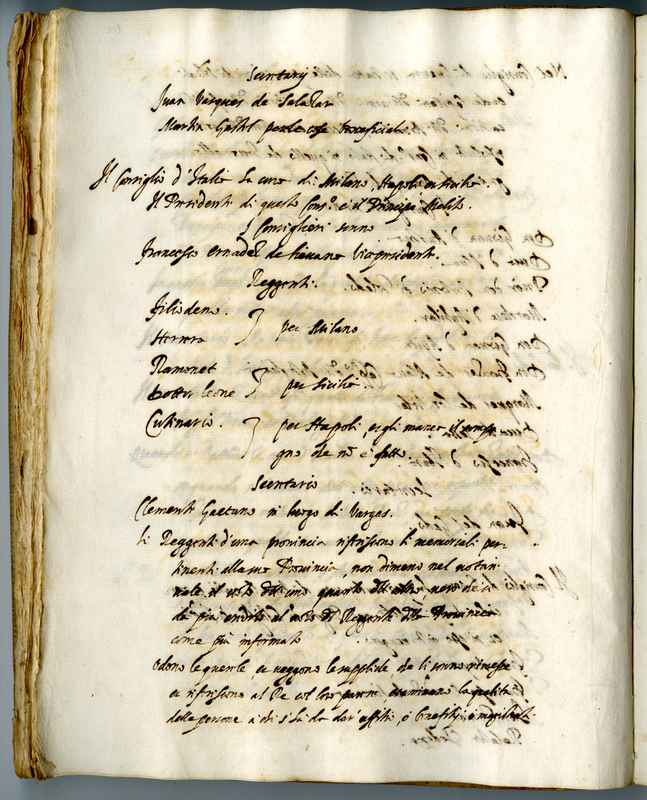 Secretarij
Juan Vasques de Salazar
Martin Gastel per le cose beneficiali
Il Consiglio d'Italia ha cura di Milano, Napoli et Sicilia.
Il Presidente di questo Cons.o è il Principe Melito.
I Consiglieri sonno
Francesco Ernandez de Vicepresidente.
Reggenti.
Filiodeno.
Herrera } per Milano
Ramonet
Dottor Leone } per Sicilia.
Culinario. } per Napoli, egli manca il compa
gno che nō è fatto.
Secretario
Clemente Gaetano in luogo di Vargas.
Li Reggenti d'una provincia riferiscono li memoriali per-
tinenti alla sua Provincia, non dimeno nel votar
vale il voto dell'uno quanto dell'altro, vero è che si
dà più credito al voto del Reggente della Provincia
come più informato
Odono le querele et veggono le suppliche che li sonno rimesse
et riferiscono al Re col loro parere esaminano la qualità
delle persone a chi s'hà da dar' uffitij, ò benefitij, ò magistrati